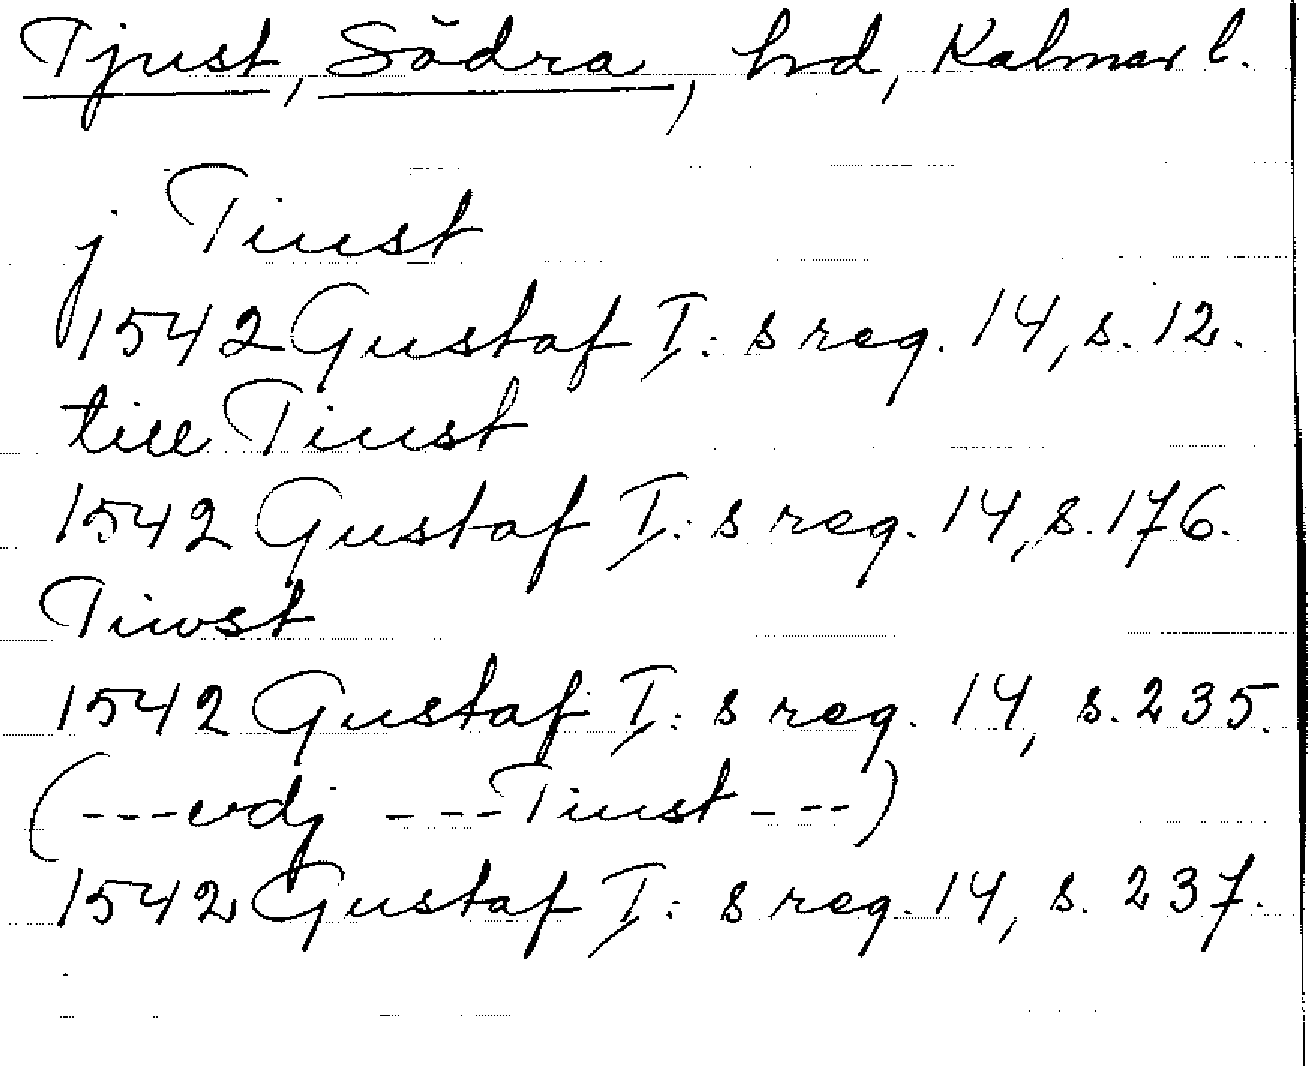 Tjust, Södra, hrd, Kalmar l.
j Tiust
1542 Gustaf I:s reg. 14, s. 12.
till Tiust
1542 Gustaf I:s reg. 14, s. 176.
Tiwst
1542 Gustaf I:s reg. 14, s. 235.
(---vdj ---Tiust---)
1542 Gustaf I:s reg. 14, s. 237.